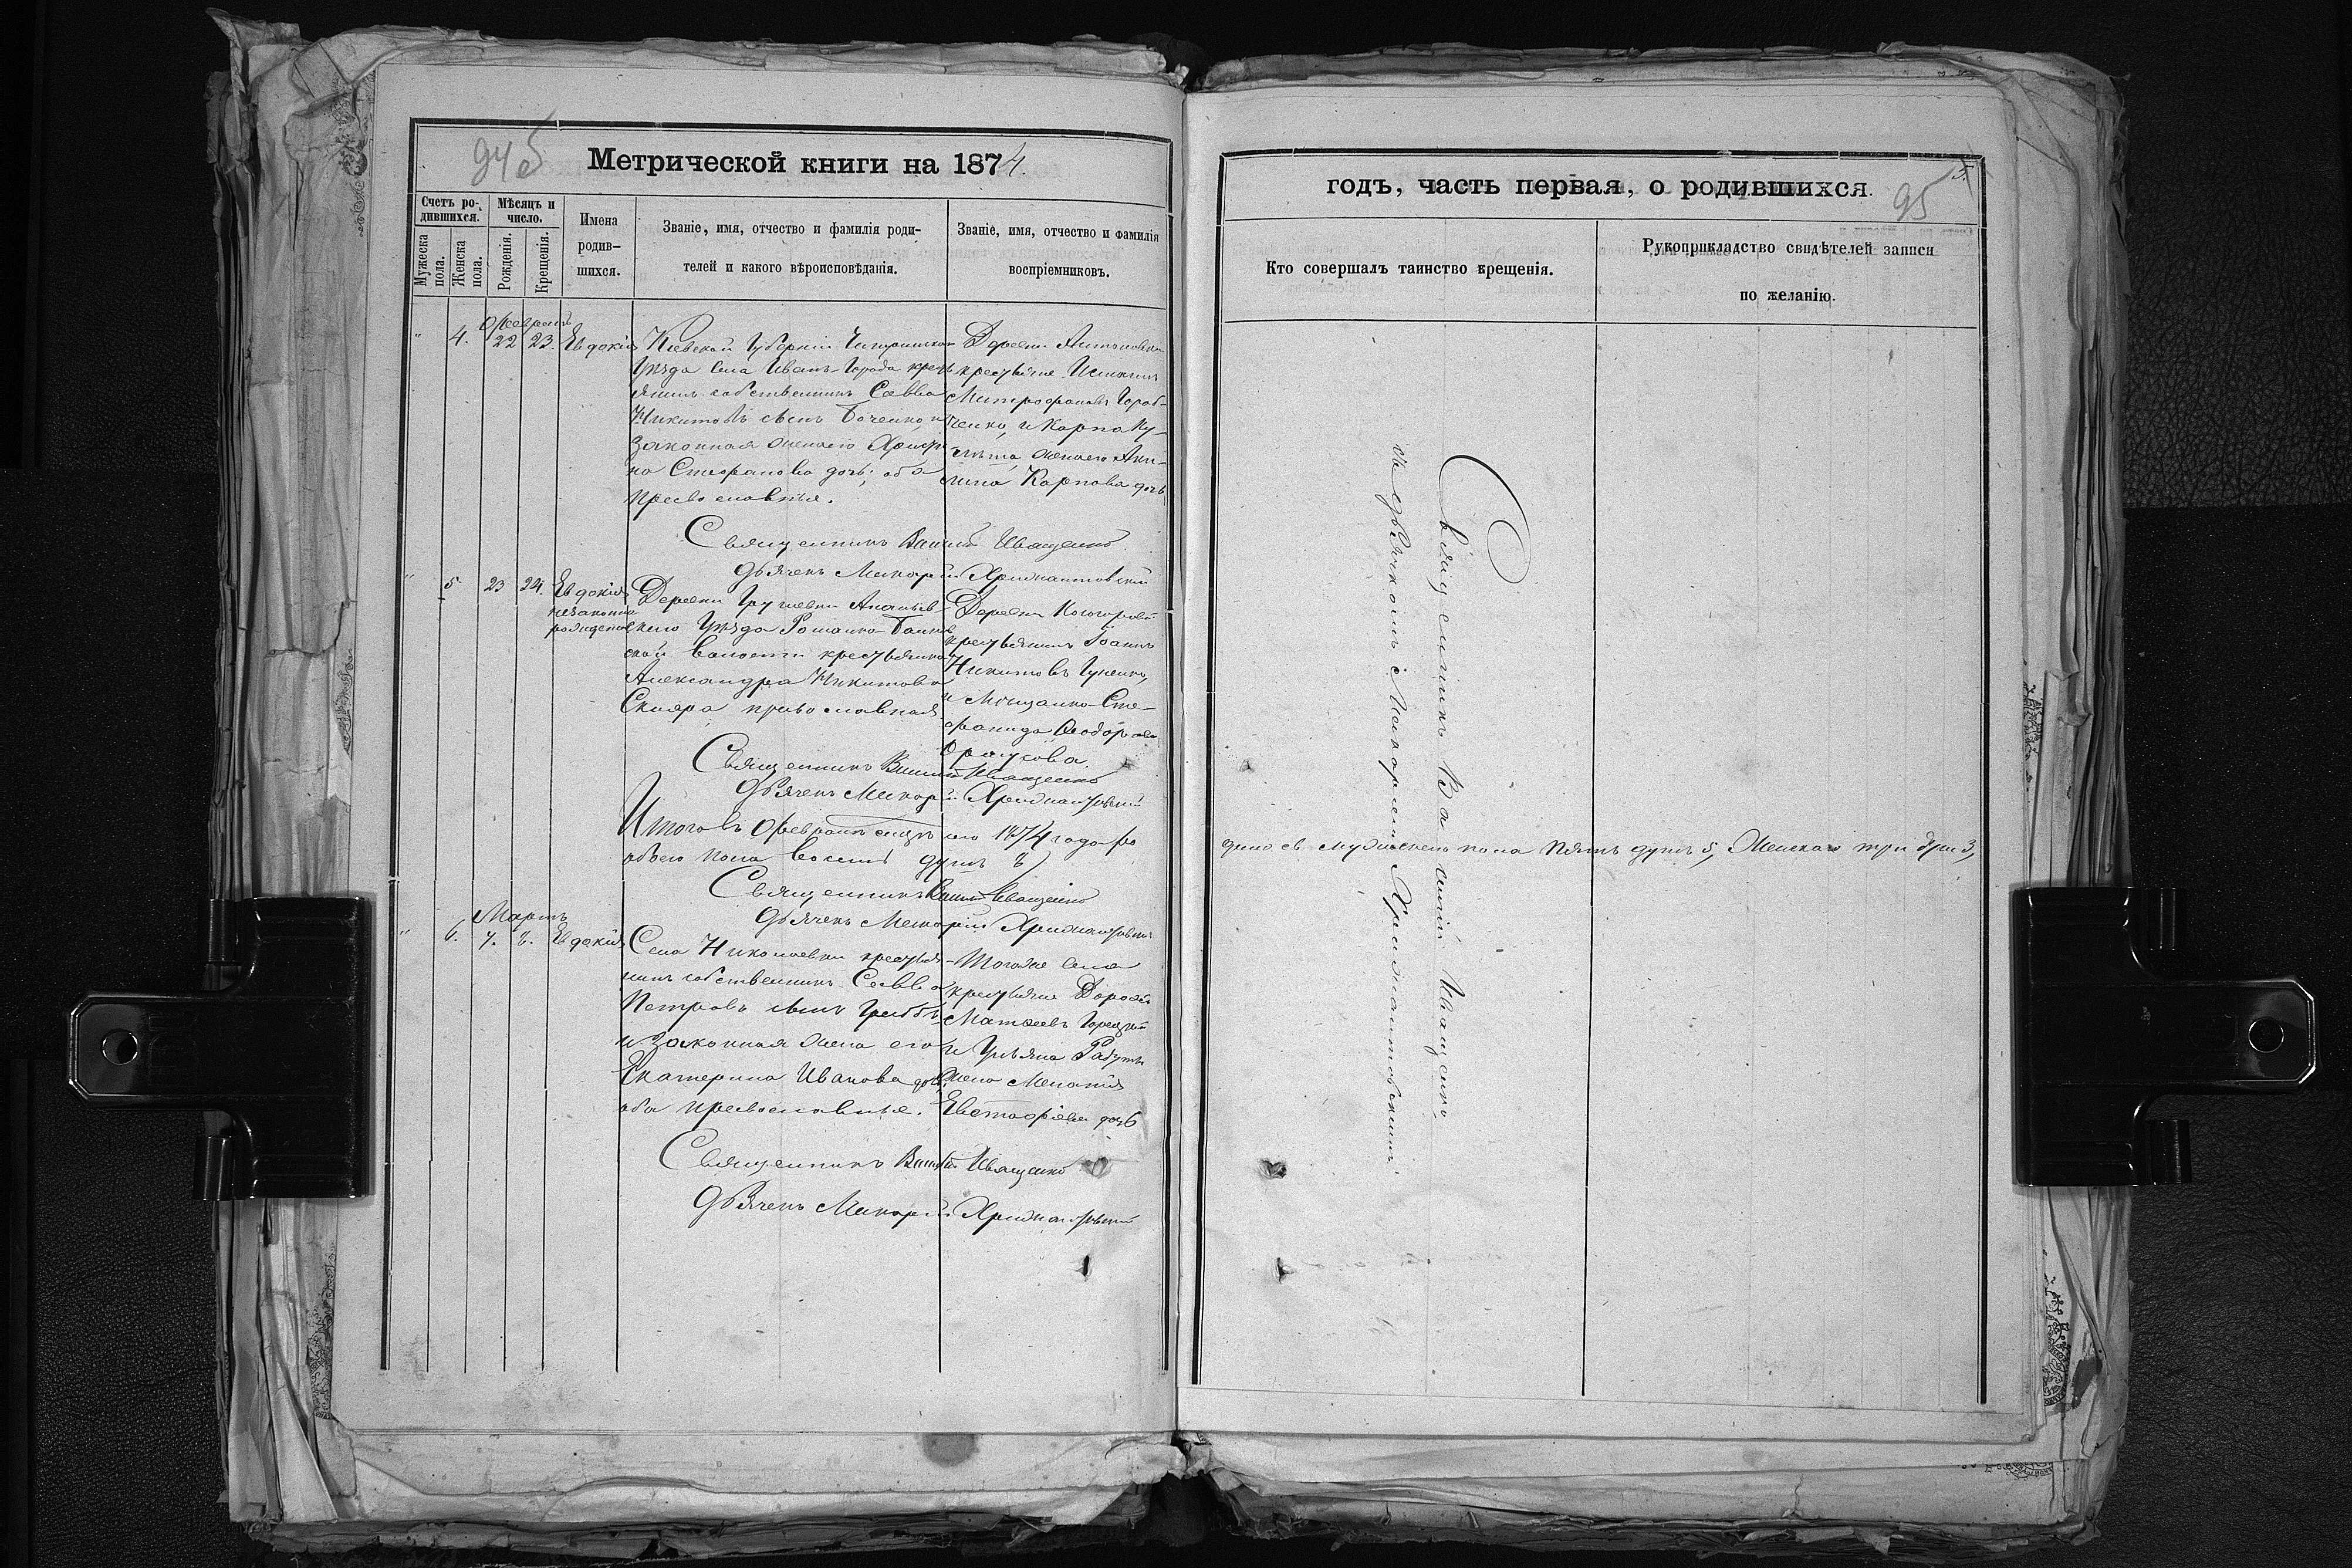 94 б
Метрической книги на 1874.
Счетъ ро-
дившихся.
Мѣсяцъ и
число.
Мужеска
пола.
Женска
пола.
Рожденія.
Крещенія.
Имена
родив-
шихся.
Званіе, имя, отчество и фамилія роди-
телей и какого вѣроисповѣданія.
Званіе, имя, отчество и фамилія
воспріемниковъ.
Февраль
" 4. 22 23. Евдокія
Кіевской Губерніи
Уѣзда Села Иванъ-Города кресть
янинъ собственникъ Савва
Никитовъ сынъ Боченко, и
законная жена его
на Стефанова дочь; оба
православные.
Деревни Антоновки
крестьяне
Митрофановъ Гороб-
ченко, и Карпа Ку-
жена его Аки-
лина Карпова дочь
Священникъ Василій Иващенко
Дьячекъ Макарій
" 5 23 24. Евдокія
незаконно
рожденная
Деревни Грушевки Ананьев-
скаго Уѣзда Романко-Балков
ской Волости крестьянка
Александра Никитова
Скляра православная
Деревни
крестьянинъ Іоаннъ
Никитовъ Гуленко,
и Мѣщанка Сте-
фанида Ѳеодорова
Священникъ Василій Иващенко
Дьячекъ Макарій
Итого въ Февралѣ сего 1874 года ро
обоего пола восемь душъ 8)
Священникъ Василій Иващенко
Дьячекъ Макарій
Мартъ
" 6. 7. 8. Евдокія
Села Николаевки крестья-
нинъ собственникъ Савва
Петровъ сынъ
и законная жена его
Екатерина Иванова дочь
оба православные.
Тогоже села
крестьяне Дороѳей
Матѳеевъ Горецкій
и Ульяна
жена Меланія
Евстафіева дочь
Священникъ Василій Иващенко
Дьячекъ Макарій
годъ, часть первая, о родившихся.
5.
95
Кто совершалъ таинство крещенія.
Рукоприкладство свидѣтелей записи
по желанію.
Священникъ Василій Иващенко
съ дьячкомъ Макаріемъ
дилось мужескаго пола пять душъ 5, Женскаго три души 3,